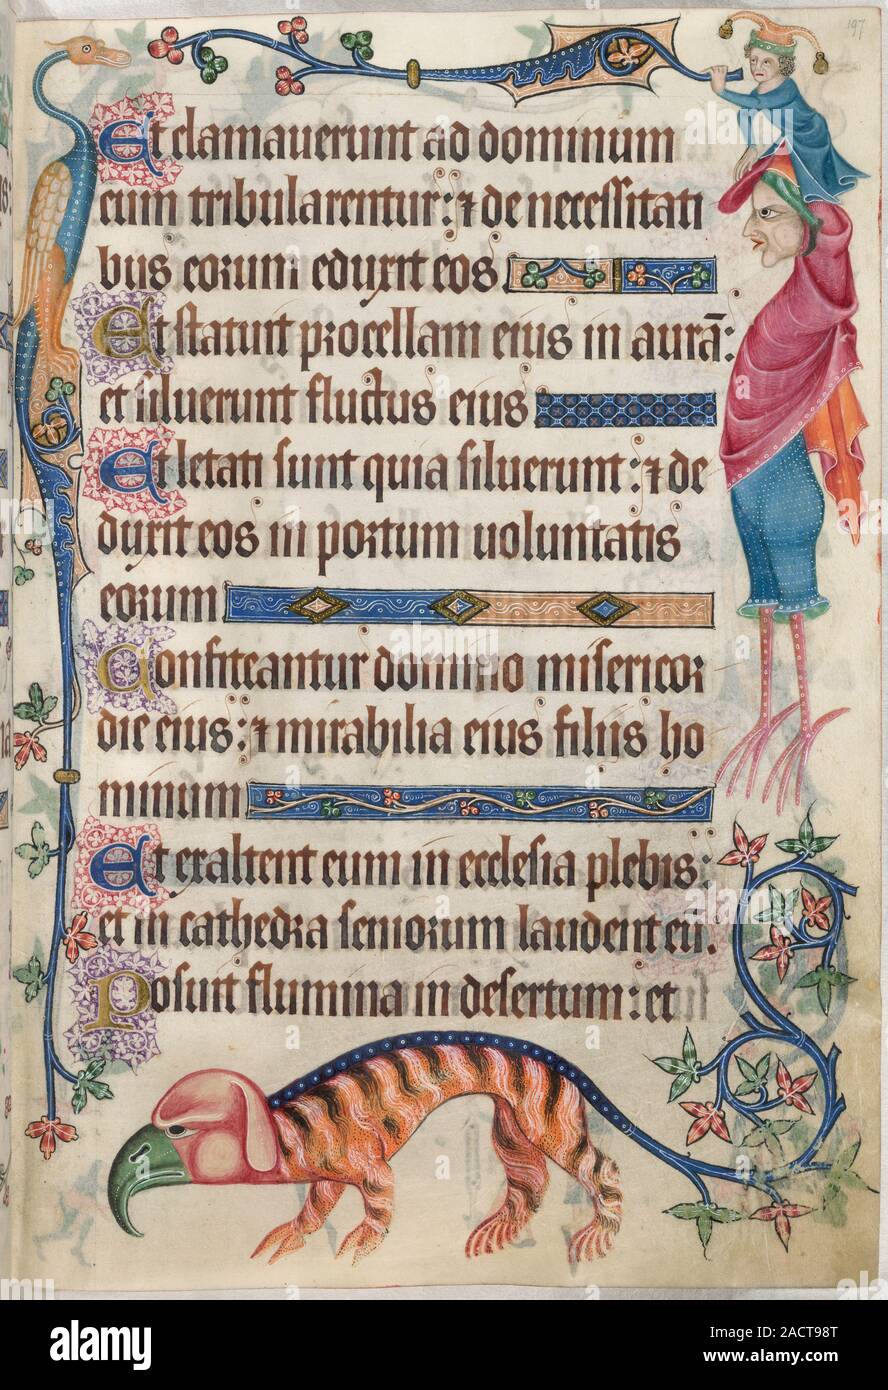 197
Et clamauerunt ad dominum
cum tribularentur: ⁊ de necessitati
bus eorum eduxit eos
Et statuit procellam eius in aurā:
et siluerunt fluctus eius
Et letati sunt quia siluerunt: ⁊ de
duxit eos in portum uoluntatis
eorum
Confiteantur domino misericor
die eius: ⁊ mirabilia eius filiis ho
minum
Et exaltent eum in ecclesia plebis:
et in cathedra seniorum laudent eū.
Posuit flumina in desertum: et
alamy
Image ID: 2ACT98T
www.alamy.com